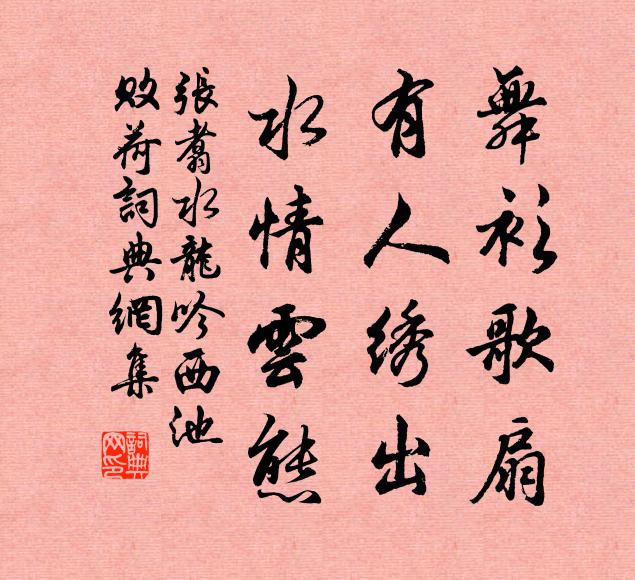 舞衫歌扇
有人绣出
水情雲態
張翥水龍吟西池
敗荷詞典網集
詞典網印